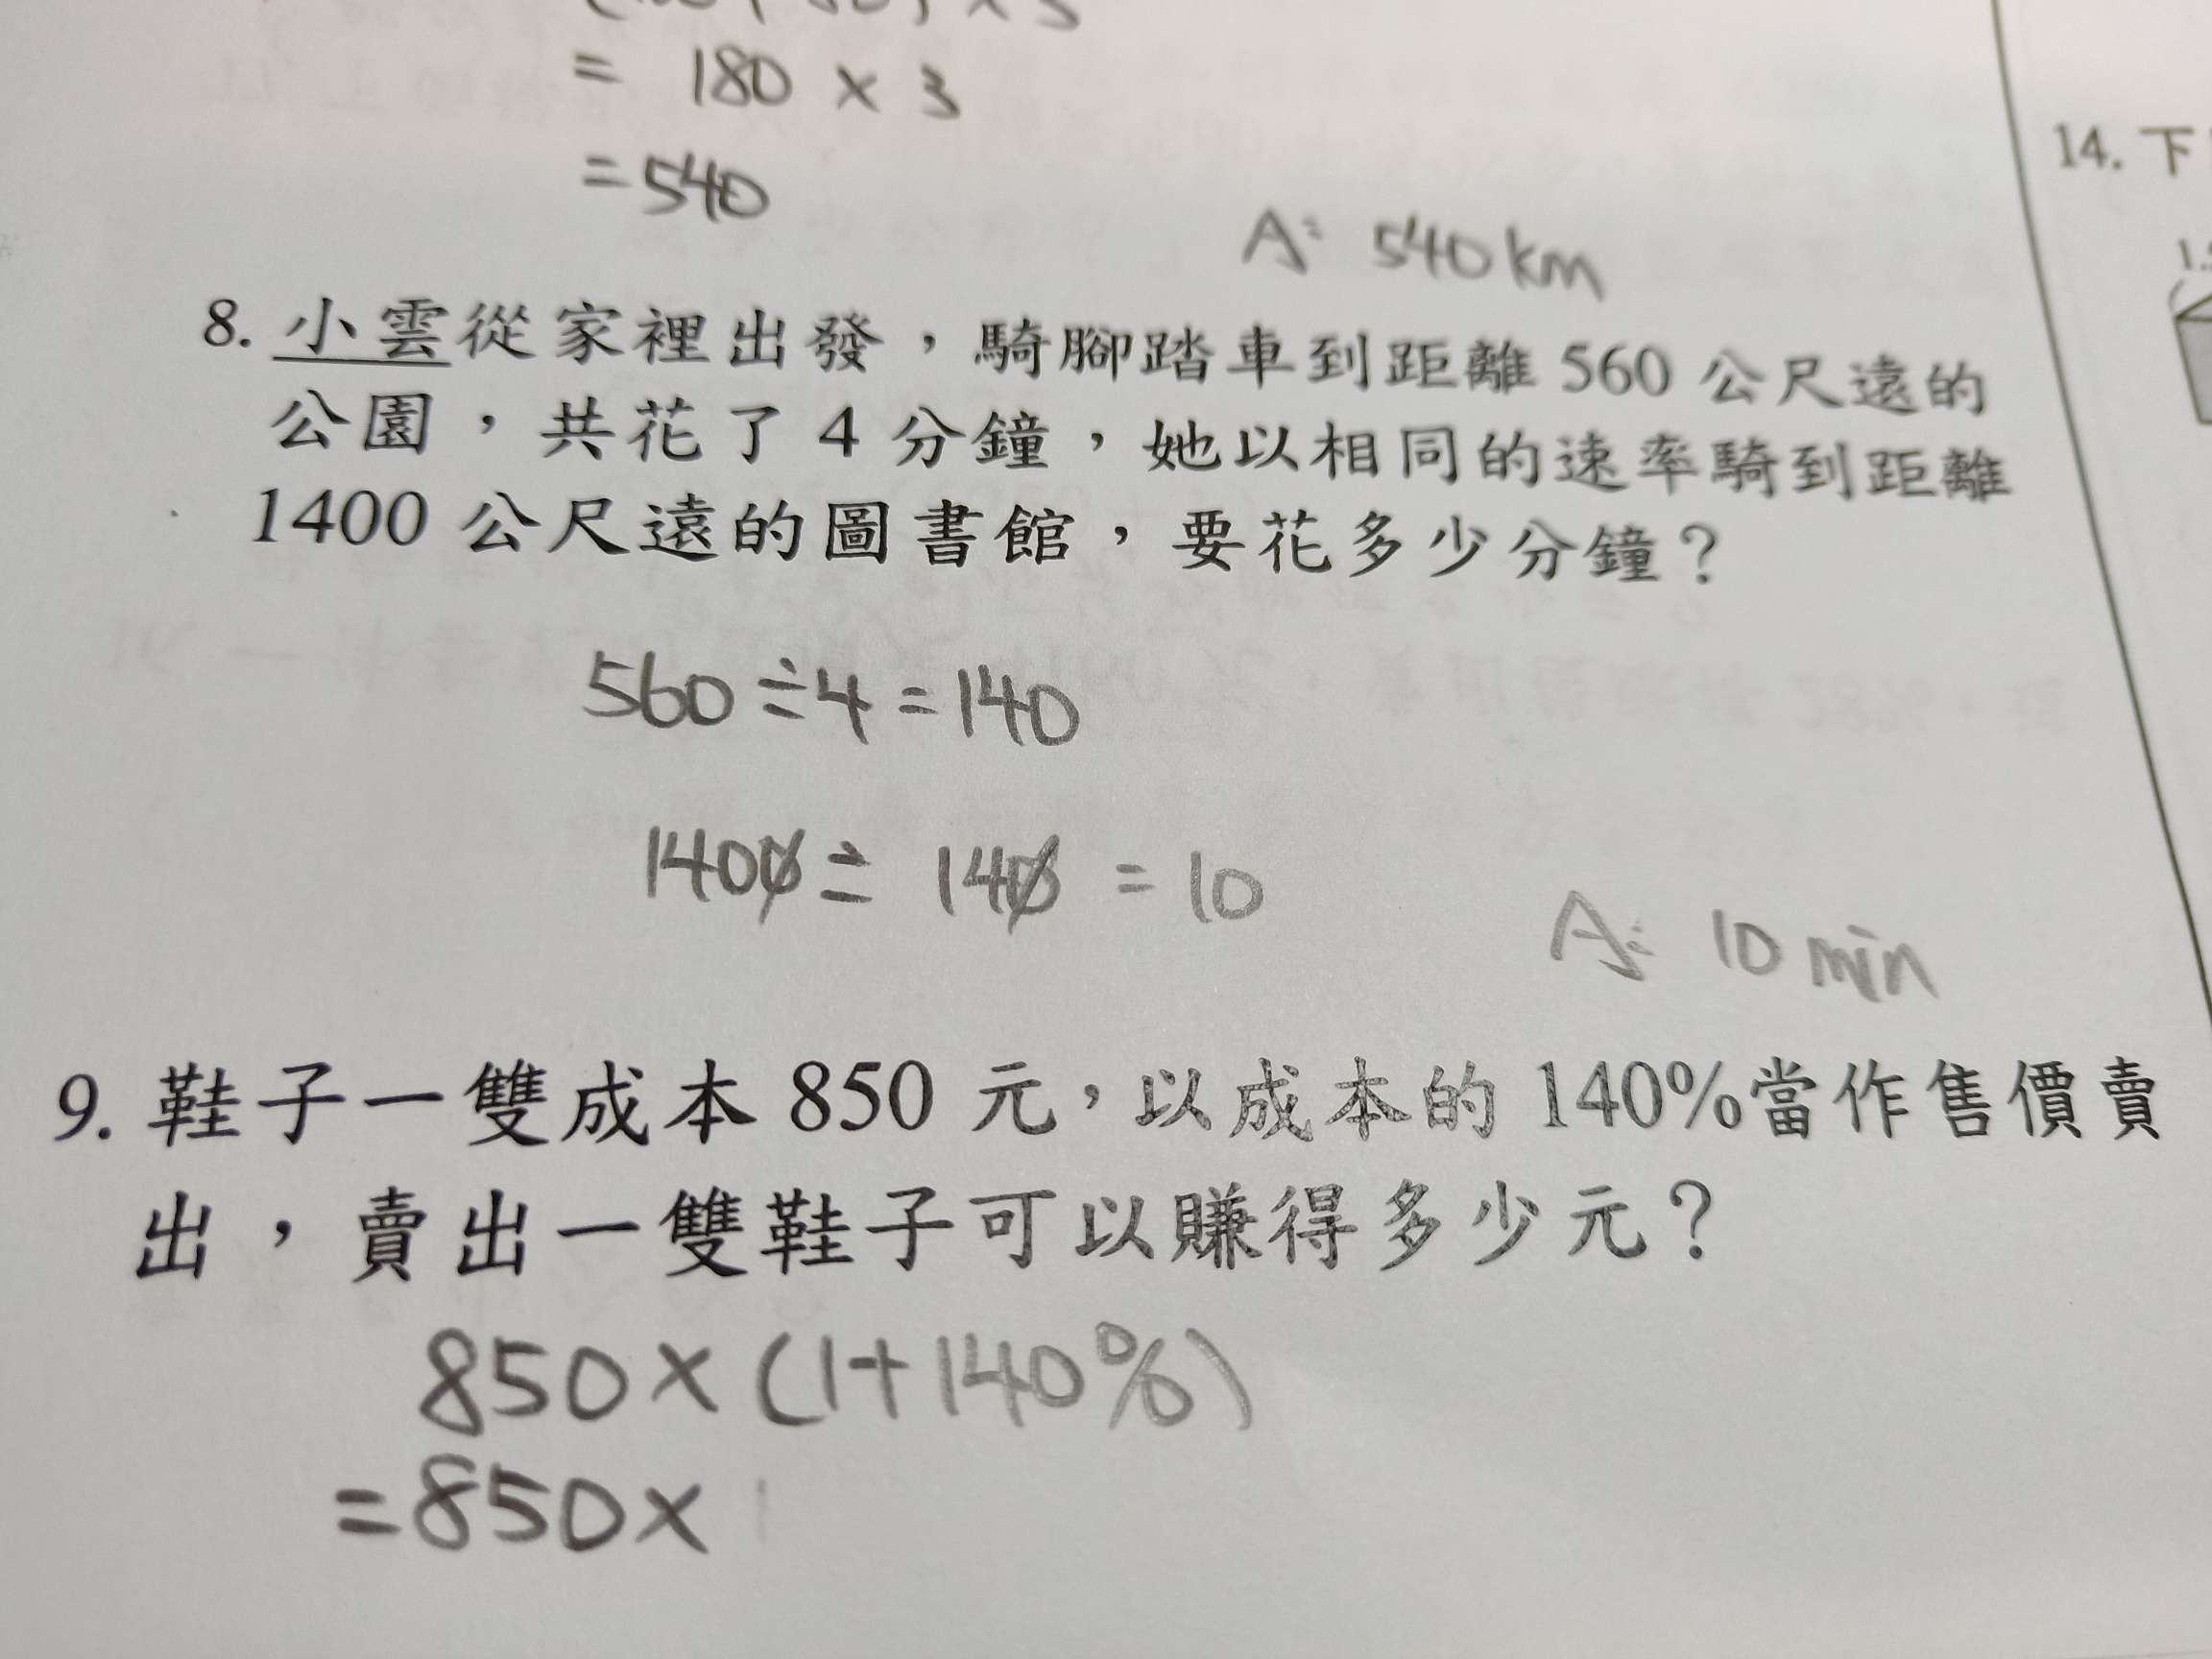 = 180 × 3
= 540
A: 540 km
14. 下
8. 小雲從家裡出發，騎腳踏車到距離 560 公尺遠的
公園，共花了 4 分鐘，她以相同的速率騎到距離
1400 公尺遠的圖書館，要花多少分鐘？
560 ÷ 4 = 140
1400 ÷ 140 = 10
A: 10 min
9. 鞋子一雙成本 850 元，以成本的 140%當作售價賣
出，賣出一雙鞋子可以賺得多少元？
850 × (1+140%)
= 850 ×